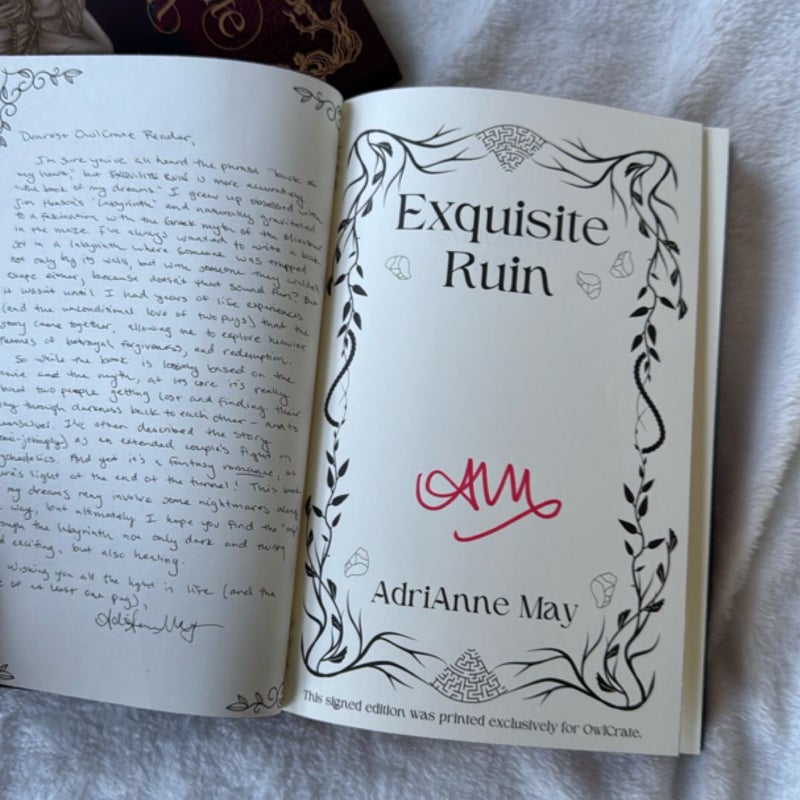 Dearest OwlCrate Reader,
I'm sure you've all heard the phrase "book of
my heart," but EXQUISITE RUIN is more accurately
"the book of my dreams." I grew up obsessed with
Jim Henson's "Labyrinth" and naturally gravitated
to a fascination with the Greek myth of the Minotaur
in the maze. I've always wanted to write a book
set in a labyrinth where someone was trapped
not only by its walls, but with someone they couldn't
escape either, because doesn't that sound fun? But
it wasn't until I had years of life experiences
(and the unconditional love of two pugs) that the
story came together, allowing me to explore heavier
themes of betrayal, forgiveness, and redemption.
So while the book is loosely based on the
movie and the myth, at its core it's really
about two people getting lost and finding their
way through darkness back to each other—and to
themselves. I've often described the story
(semi-jokingly) as an extended couple's fight on
psychedelics. And yet it's a fantasy romance, so
there's light at the end of the tunnel! This book
my dreams may involve some nightmares along
way, but ultimately I hope you find the "trip"
through the labyrinth not only dark and twisty
and exciting, but also healing.
Wishing you all the light in life (and the
of at least one pug),
AdriAnne May
Exquisite
Ruin
AM
AdriAnne May
This signed edition was printed exclusively for OwlCrate.